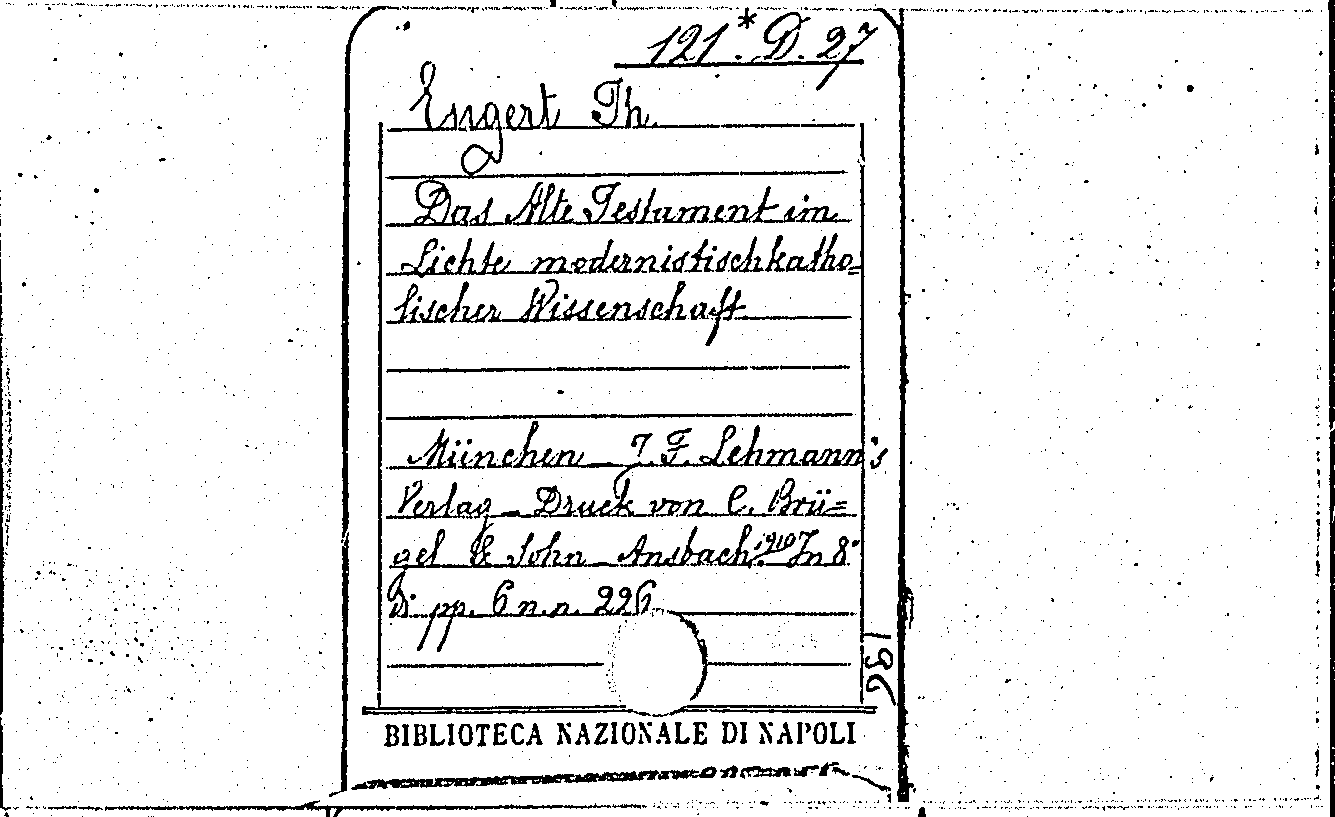 121.* D. 27
Engert Th.
Das Alte Testament im
Lichte modernistischkatho=
lischer Wissenschaft
München - J. F. Lehmann's
Verlag - Druck von C. Brü=
gel & Sohn - Ansbach. 1910? In 8°
Di pp. 6 n.n. 226
196
BIBLIOTECA NAZIONALE DI NAPOLI